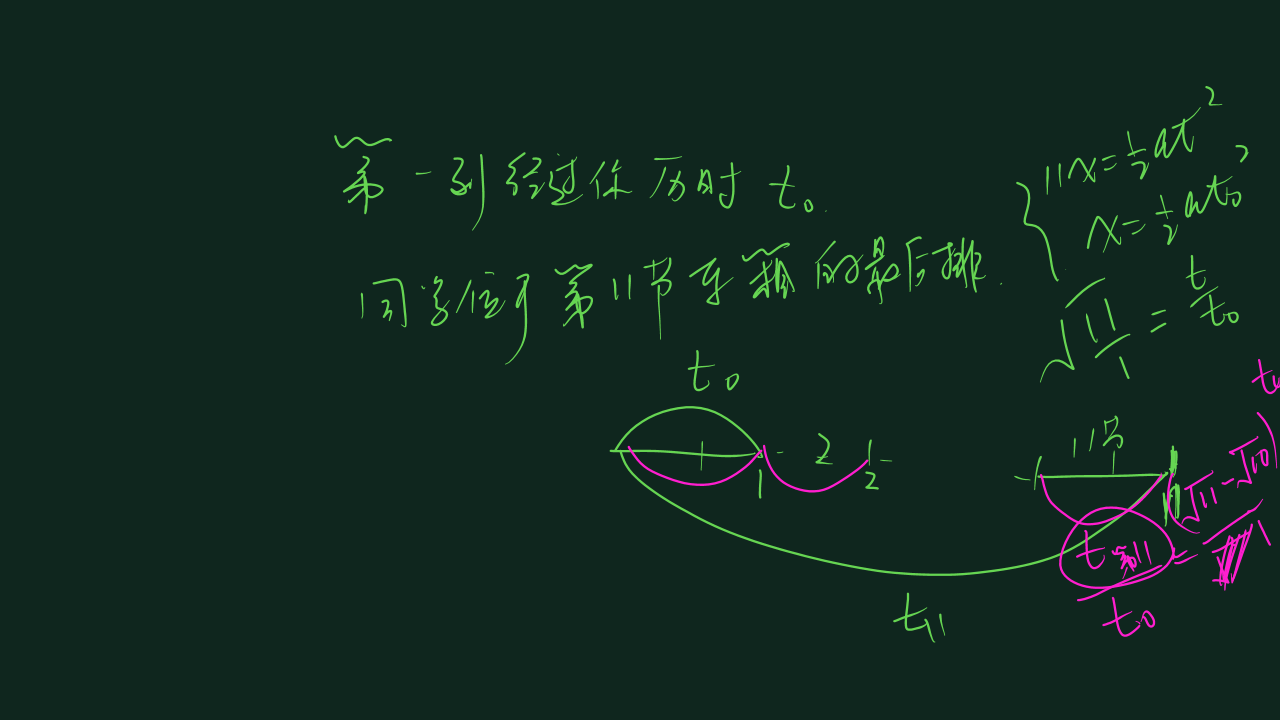 第一列经过你历时 t₀.
同学位于第11节车箱的最后排.
11x=½at²
x=½at₀²
√(11/1) = t/t₀
t₀
1 2 2
11节
t₁₁
t第11/t₀ = (√11-√10)/1